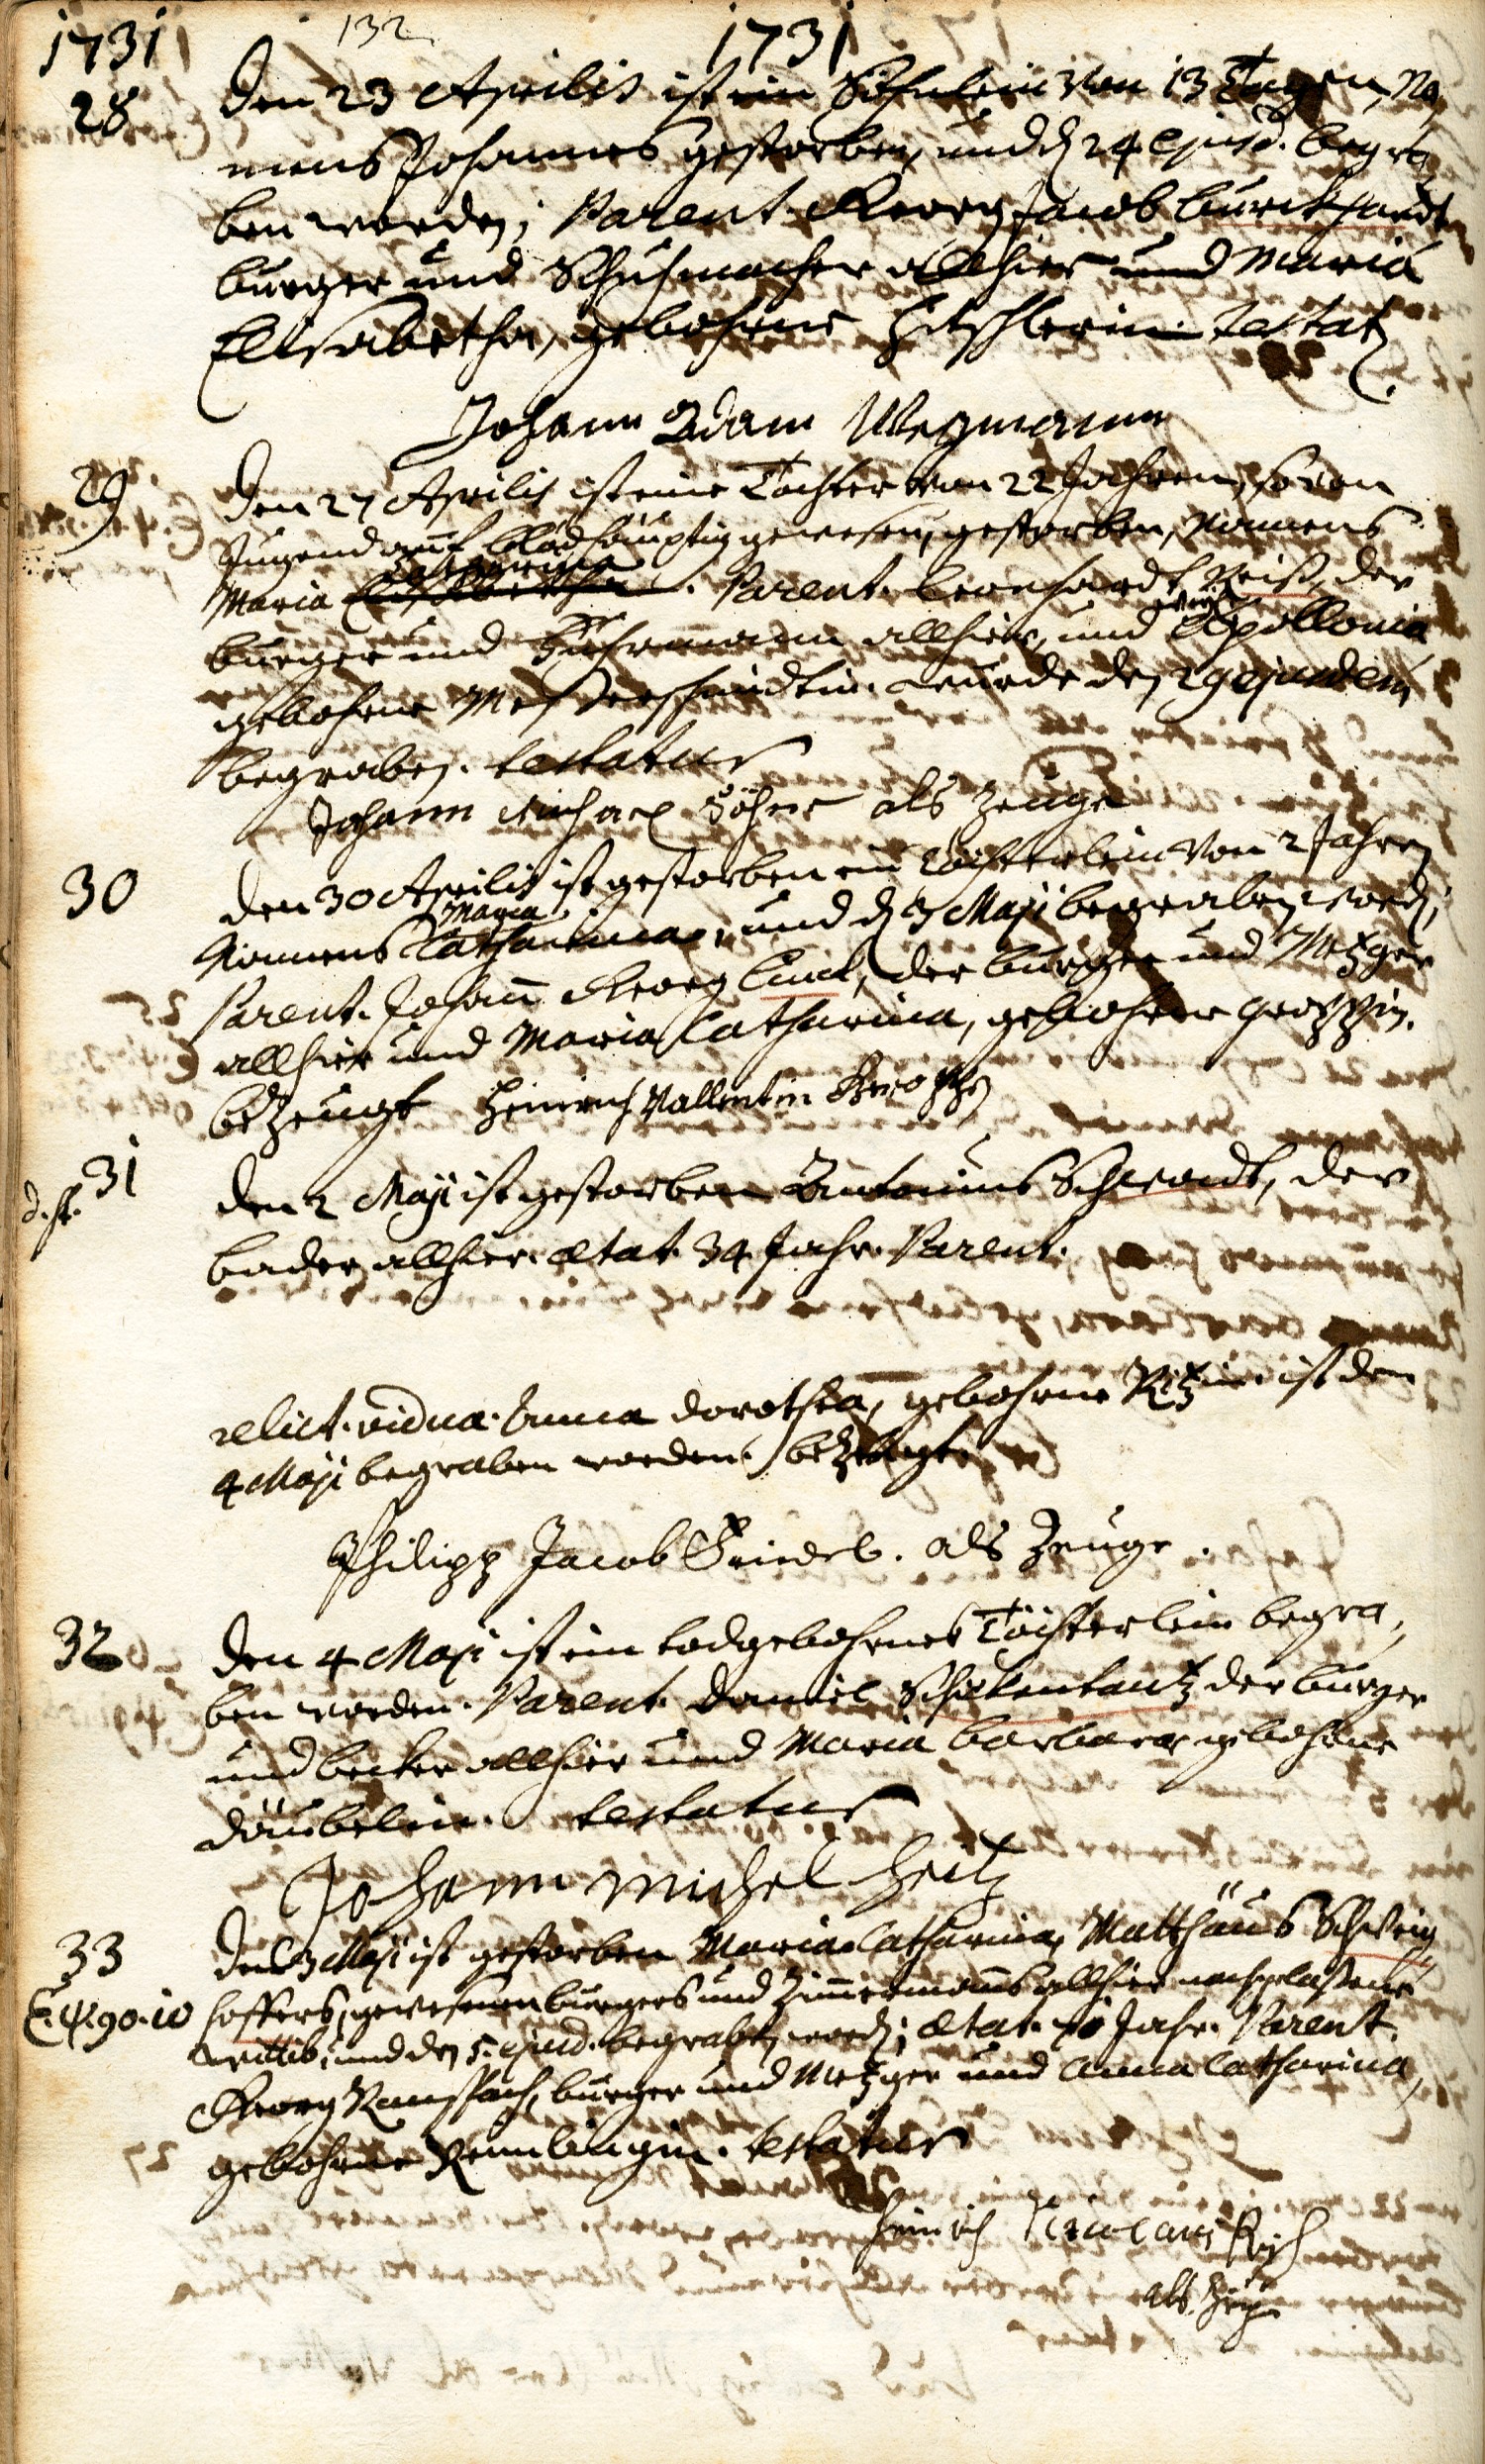 1731 132 1731
28 Den 23 Aprilis ist ein Söhnlein von 13 Tagen, Na,
mens Johannes gestorben, und d. 24 ejusd. begra,
ben worden; Parent. Georg Jacob Burckhardt
burger und Schuhmacher allhier und Maria
Elisabetha, gebohrne Testat.
Johann Adam Wegmann
29 Den 27 Aprilis ist eine Tochter von 22 Jahren, so von
Jugend auf blödhäuptig gewesen, gestorben, Namens
Catharina
Maria Elisabetha. Parent. Leonhardt Reiß, der
burger und Fuhrmann allhier, und Apollonia
gebohrne Messerschmidtin. wurde den 29 ejusdem
begraben. testatur
Johann Michael als Zeuge
30 Den 30 Aprilis ist gestorben ein Töchterlein von 2 Jahren
Maria
Namens Catharina, und d. 3 Maji begraben word.;
Parent. Johann Georg Linck, der burger und Metzger
allhier und Maria Catharina, gebohrne
bezeugt Heinrich Vallentin
d. st. 31 Den 2 Maji ist gestorben Antonius Schwendt, der
bader allhier. ætat. 34 Jahr. Parent.
relict. vidua. Anna Dorothea, gebohrne ist den
4 Maji begraben worden. bezeugt
Philipp Jacob Friedel. als Zeuge.
32 Den 4 Maji ist ein todgebohrnes Töchterlein begra,
ben worden. Parent. Daniel Schelentantz der burger
und becker allhier und Maria Barbara gebohrne
Däubelin. testatur
Johann Michel Heitz
33 Den 3 Maji ist gestorben Maria Catharina, Matthäus Schweig
hoffers, gewesenen burgers und Zimmermanns allhier nachgelaßene
wittib, und den 5. ejusd. begraben word.; ætat. Jahr. Parent.
Georg Ramspach, burger und Metzger und Anna Catharina,
gebohrne Remlingin. testatur
Heinrich
als Zeug